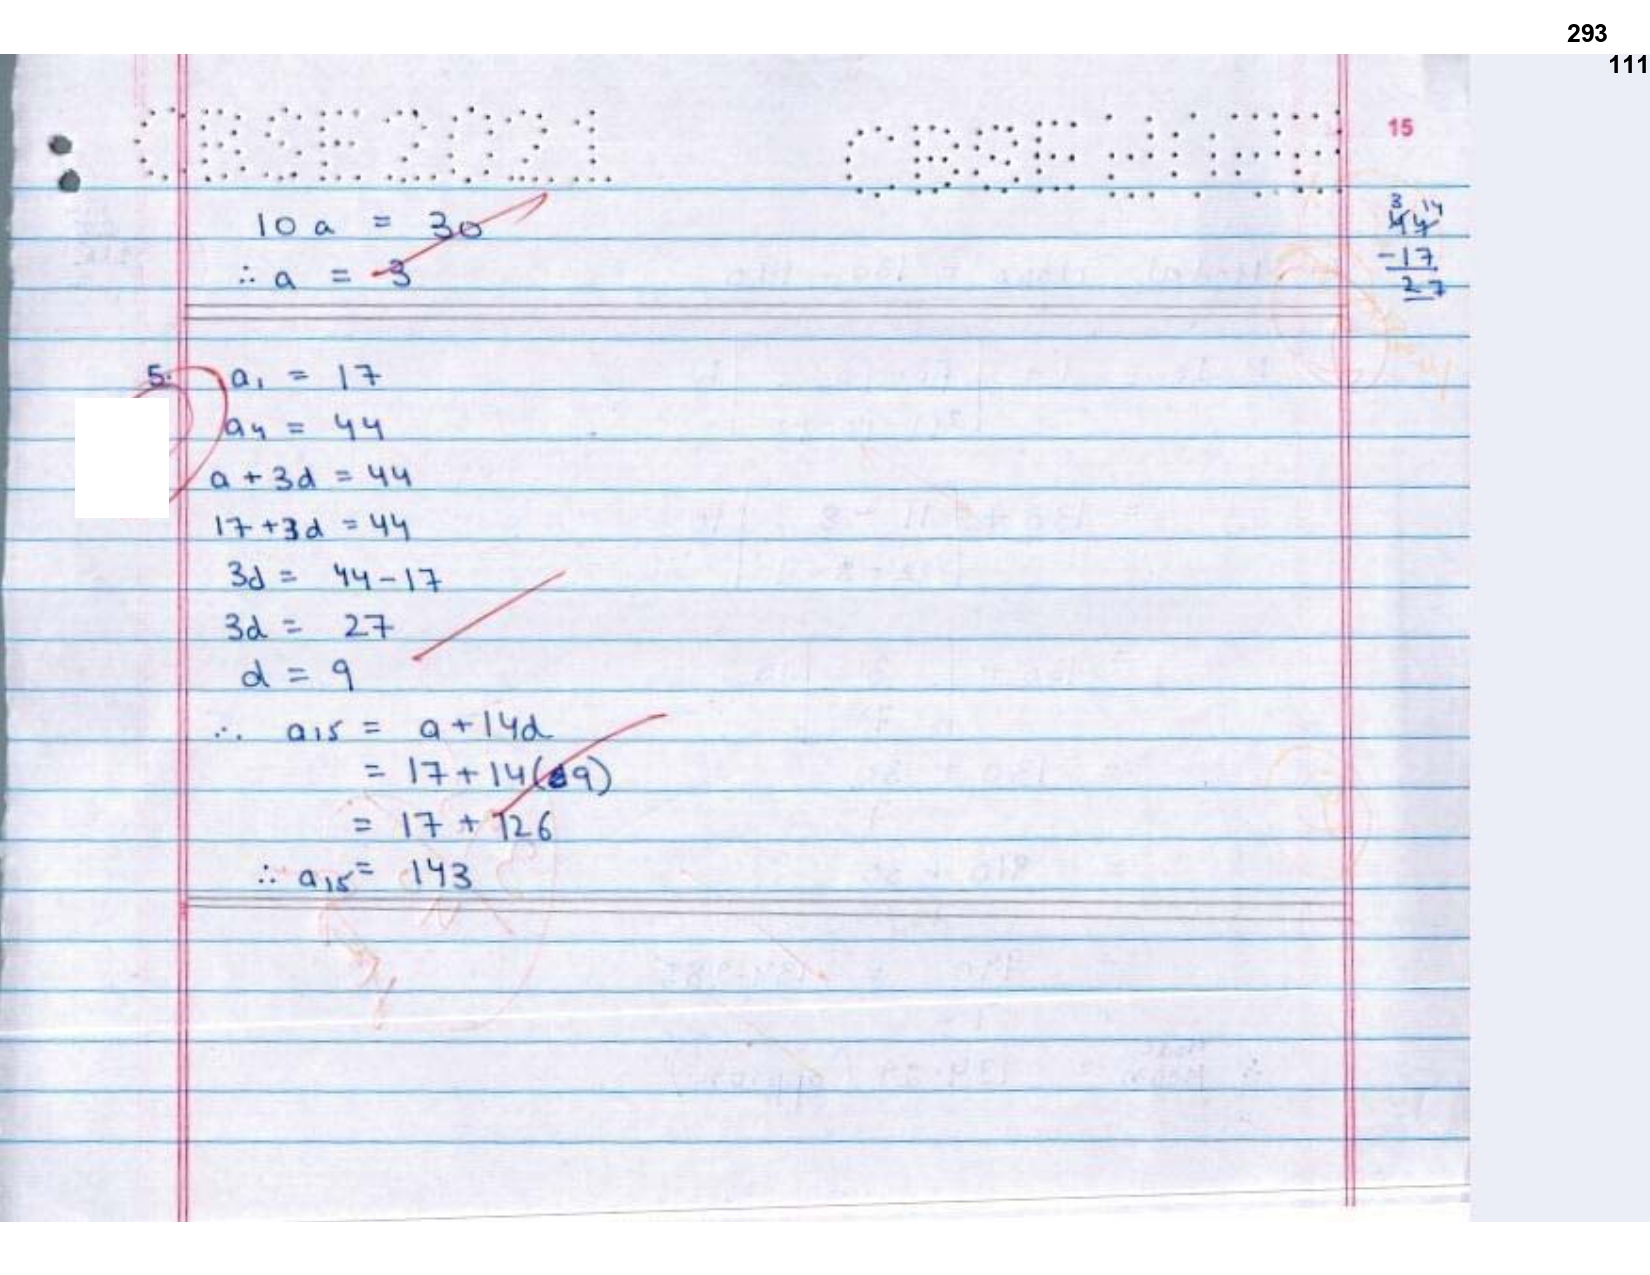 293
111
CBSE 2021
CBSE
15
10 a = 30
∴ a = 3
3 14
44
-17
27
5. a₁ = 17
a₄ = 44
a + 3d = 44
17 + 3d = 44
3d = 44 - 17
3d = 27
d = 9
∴ a₁₅ = a + 14d
= 17 + 14(9)
= 17 + 126
∴ a₁₅ = 143